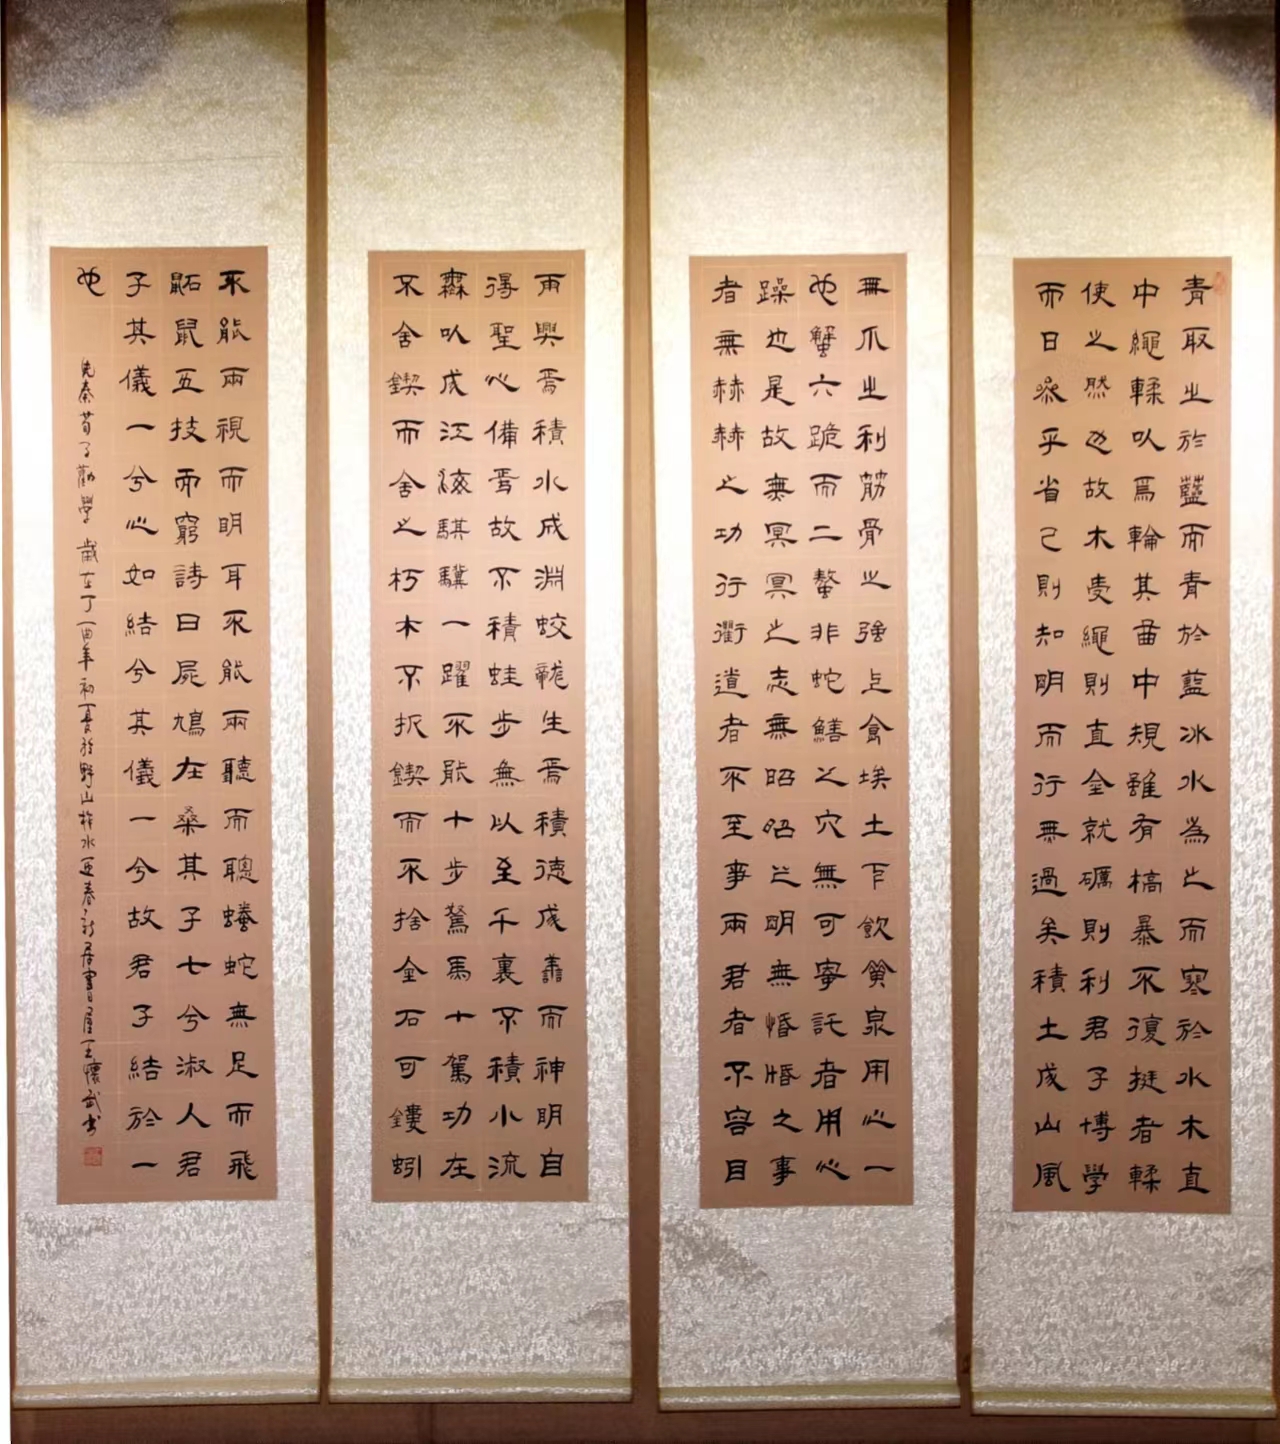 青取之於藍而青於藍冰水為之而寒於水木直
中繩輮以爲輪其曲中規雖有槁暴不復挺者輮
使之然也故木受繩則直金就礪則利君子博學
而日參乎省己則知明而行無過矣積土成山風
無爪之利筋骨之強上食埃土下飲黃泉用心一
也蟹六跪而二螯非蛇鱔之穴無可寧託者用心
躁也是故無冥冥之志無昭昭之明無惛惛之事
者無赫赫之功行衢道者不至事兩君者不容目
雨興焉積水成淵蛟龍生焉積德成善而神明自
得聖心備焉故不積蛙步無以至千裏不積小流
無以成江海騏驥一躍不能十步駑馬十駕功在
不舍鍥而舍之朽木不折鍥而不捨金石可鏤蚓
不能兩視而明耳不能兩聽而聰螣蛇無足而飛
鼫鼠五技而窮詩曰屍鳩在桑其子七兮淑人君
子其儀一兮心如結兮其儀一兮故君子結於一
也
先秦荀子勸學 歲在丁酉年初夏於野山柞水春新居書屋王懷武書